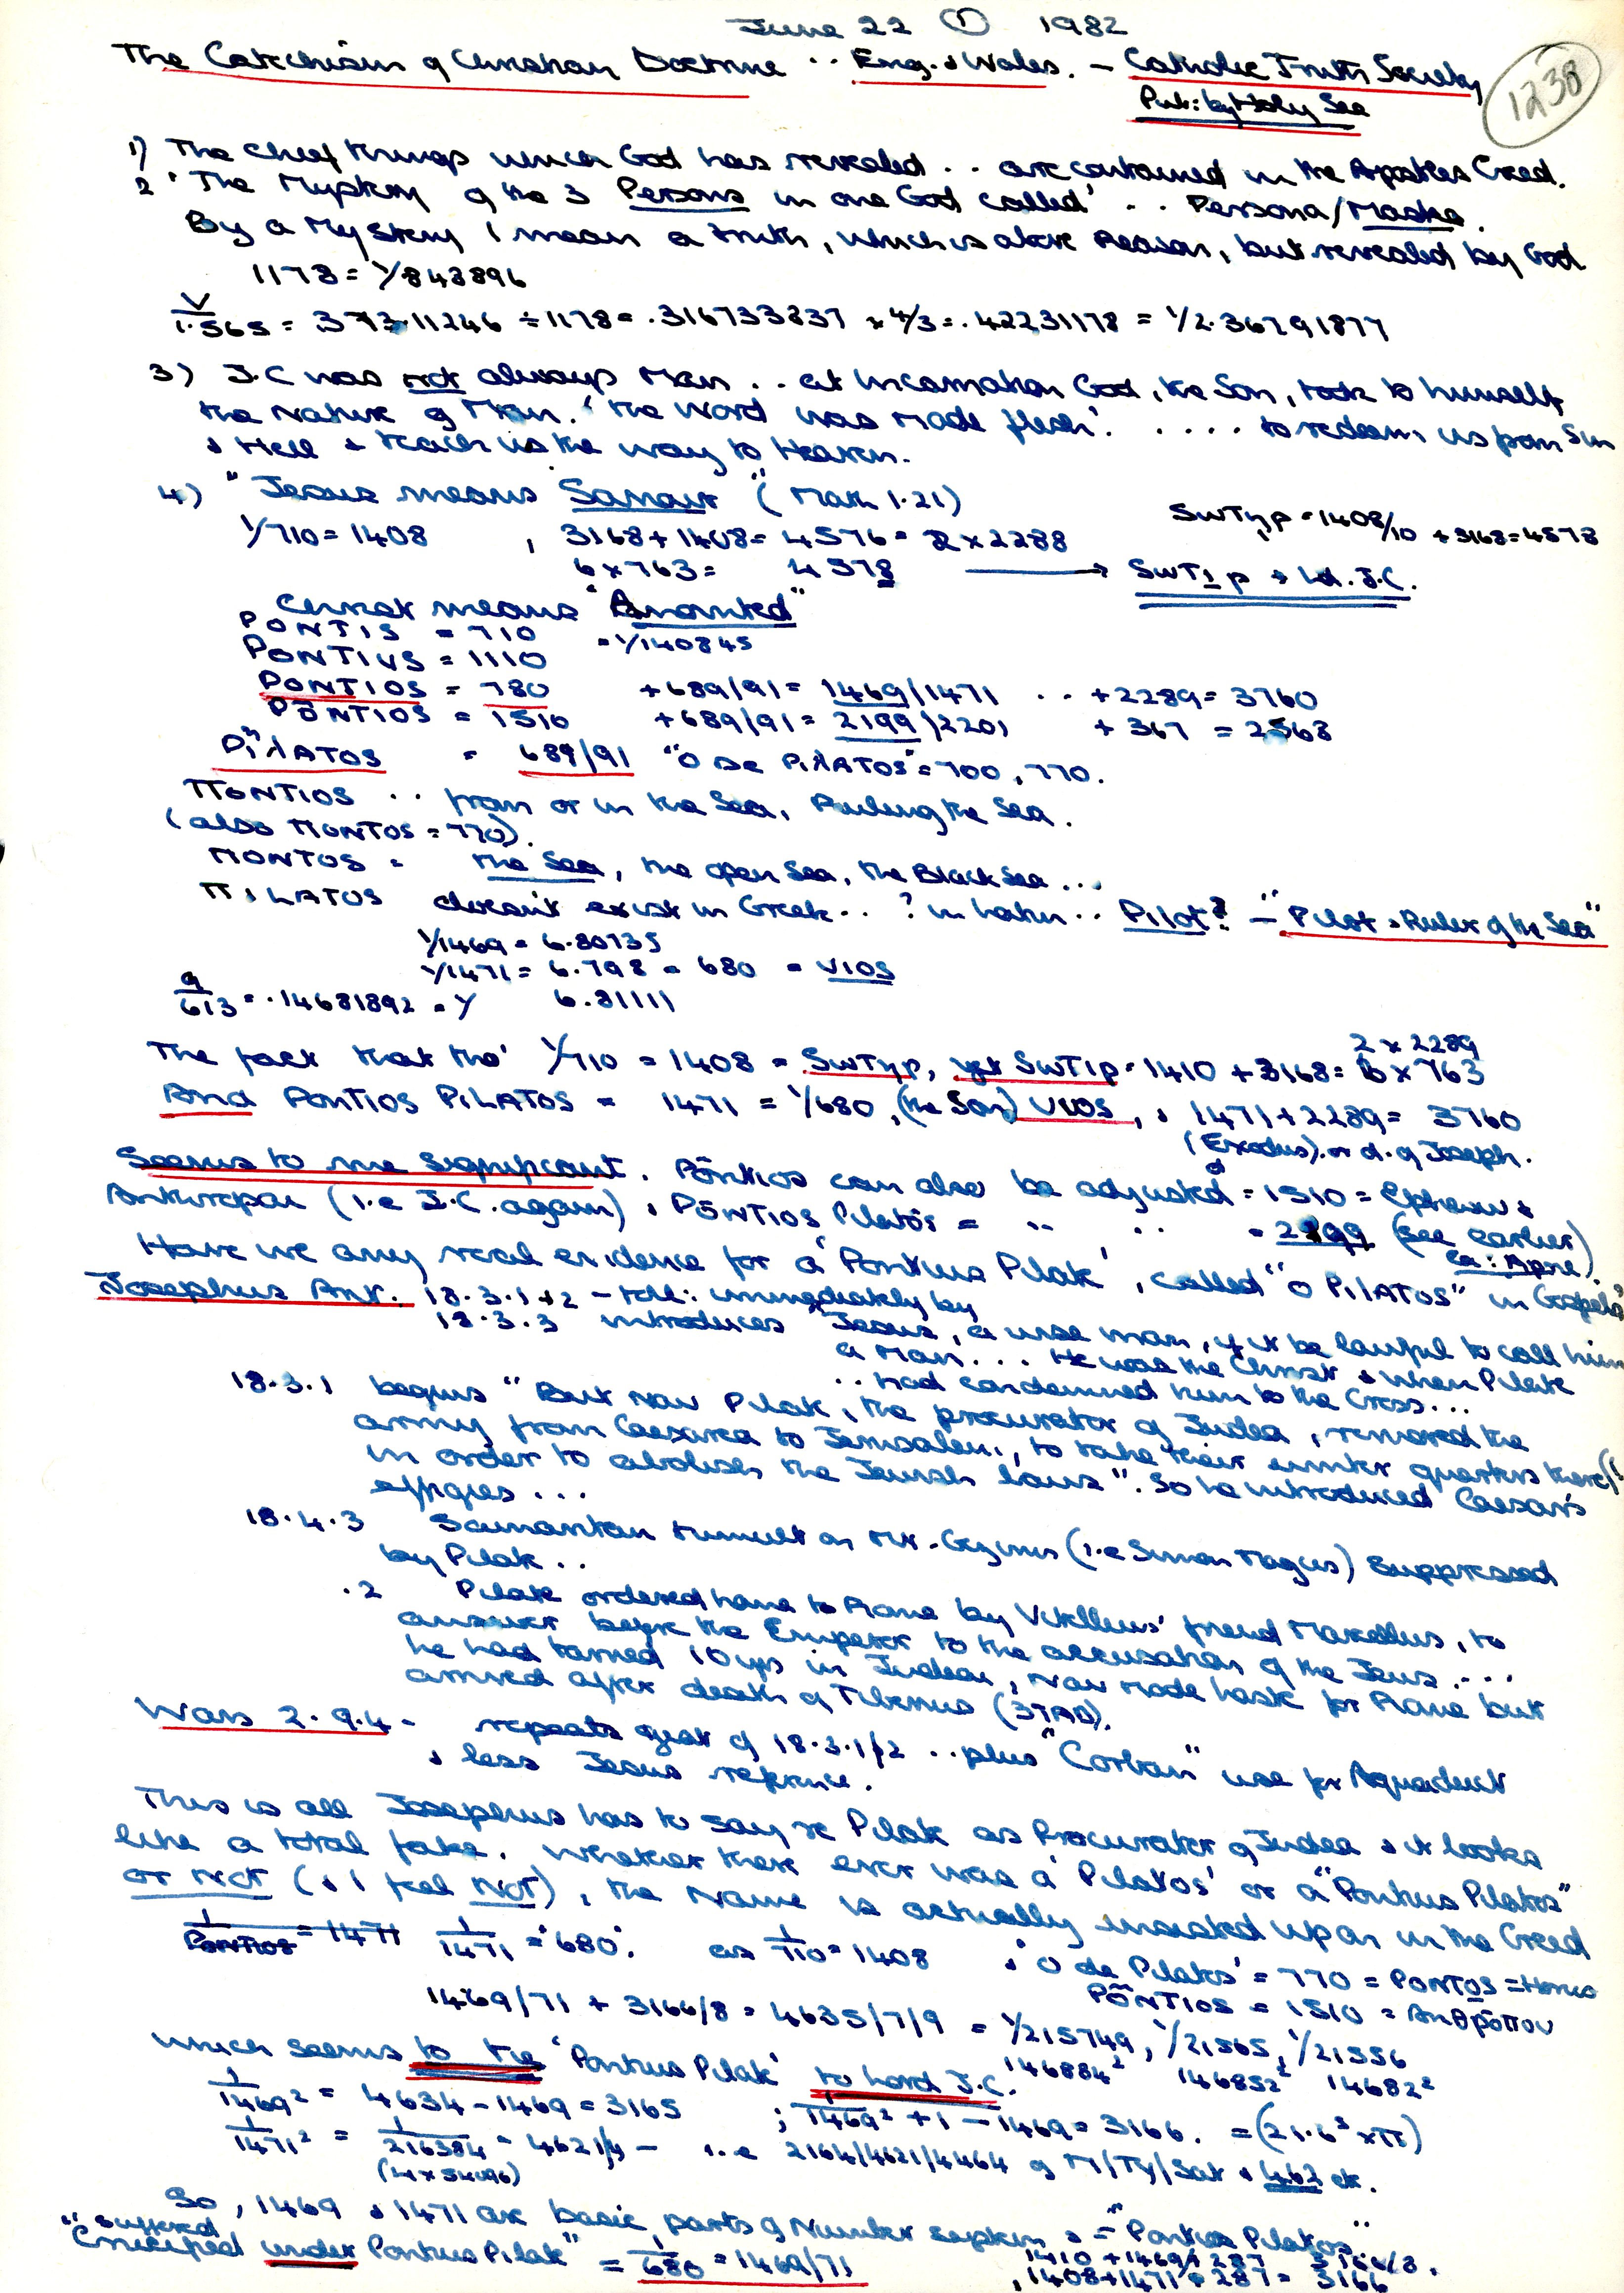 June 22 ① 1982
The Catechism of Christian Doctrine .. Eng. & Wales. - Catholic Truth Society
Pub: by Holy See
1238
1) The chief things which God has revealed .. are contained in the Apostles Creed.
2 "The Mystery of the 3 Persons in one God called' .. Persona/Masks.
By a Mystery I mean a truth, which is above Reason, but revealed by God
1178 = 1/848896
V/1.565 = .373.11246 ÷ 1178 = .316733237 x 4/3 = .42231178 = 1/2.36791877
3) J.C was not always Man .. at Incarnation God, the Son, took to himself
the Nature of Man. 'the Word was Made flesh'. .... to redeem us from Sin
& Hell & teach us the way to Heaven.
4) "Jesus means Saviour" (Math 1.21)
1/710 = 1408 , 3168 + 1408 = 4576 = 2 x 2288
SWTyp = 1408/10 + 3168 = 4578
6 x 763 = 4578 → SWTip & Ld. J.C.
Christ means "Anointed"
PONTIS = 710 = 1/140845
PONTIUS = 1110
PONTIOS = 780 + 689/91 = 1469/1471 .. + 2289 = 3760
PŌNTIOS = 1510 + 689/91 = 2199/2201 + 367 = 2568
PiλATOS = 689/91 "O De PiλATOS" = 700, 770.
ΠONTIOS .. from or in the Sea, Ruling the Sea.
(also ΠONTOS = 770)
ΠONTOS = the Sea, the open Sea, the Black Sea ...
ΠILATOS doesn't exist in Greek .. ? in Latin .. Pilot? - "Pilot & Ruler of the Sea"
1/1469 = 6.80735
1/1471 = 6.798 = 680 = VIOS
9/613 = .14681892 = Y 6.81111
The fact that the' 1/710 = 1408 = SWTyp, yet SWTip = 1410 + 3168 = 6 x 763
2 x 2289
And PONTIOS PILATOS = 1471 = 1/680, (the Son) VIOS, & 1471 + 2289 = 3760
(Exodus) or d. of Joseph.
Seems to me significant. Pōntios can also be adjusted = 1510 = Ephraim &
Anthropou (i.e J.C. again) & PŌNTIOS Pilatos = .. .. = 2199 (see earlier)
Have we any real evidence for a 'Pontius Pilate', called "O PilATOS" in Gospels?
Josephus Ant. 18.3.1+2 - tell: immediately by
18.3.3 introduces "Jesus, a wise man, if it be lawful to call him
a Man' ... He was the Christ & when Pilate
.. had condemned him to the Cross ...
18.3.1 begins "But Now Pilate, the procurator of Judea, removed the
army from Caesarea to Jerusalem, to take their winter quarters there(!)
in order to abolish the Jewish laws". So he introduced Caesar's
effigies ...
18.4.3 Samaritan tumult on Mt. Gezim (i.e Simon Magus) suppressed
by Pilate ..
.2 Pilate ordered home to Rome by Vitellius' friend Marcellus, to
answer before the Emperor to the accusation of the Jews ....
he had tarried 10 yrs in Judea, Now Made haste for Rome but
arrived after death of Tiberius (37AD).
Wars 2.9.4 - repeats gist of 18.3.1/2 .. plus "Corban" use for Aquaduct
& less Jesus refrence.
This is all Josephus has to say re Pilate as Procurator of Judea & it looks
like a total fake. Whether there ever was a 'Pilatos' or a "Pontius Pilatos"
or NOT (& I feel NOT), the Name is actually insisted upon in the Creed
1/PONTIOS = 1471 1/1471 = '680'. as 1/710 = 1408 & 'O de Pilatos' = 770 = PONTOS =
PŌNTIOS = 1510 = Ανθρōπου
1469/71 + 3166/8 = 4635/7/9 = 1/215749, 1/21565, 1/21556
146884² 146852² 14682²
which seems to tie 'Pontius Pilate' to Lord J.C.
1/1469² = 4634 - 1469 = 3165 ; 1/1469² + 1 - 1469 = 3166. = (21.6³ x π)
1/1471² = 1/216384 = 4621/4 - i.e 2164/4621/4464 of M/TY/Sat & 462 etc.
(4 x 54096)
So, 1469 & 1471 are basic parts of Number system & = "Pontios Pilatos".
"suffered
Crucified under Pontius Pilate" = 1/680 = 1469/71
1410 + 1469/ + 287 3166/8.
, 1408 + 1471 + 287 = 3166